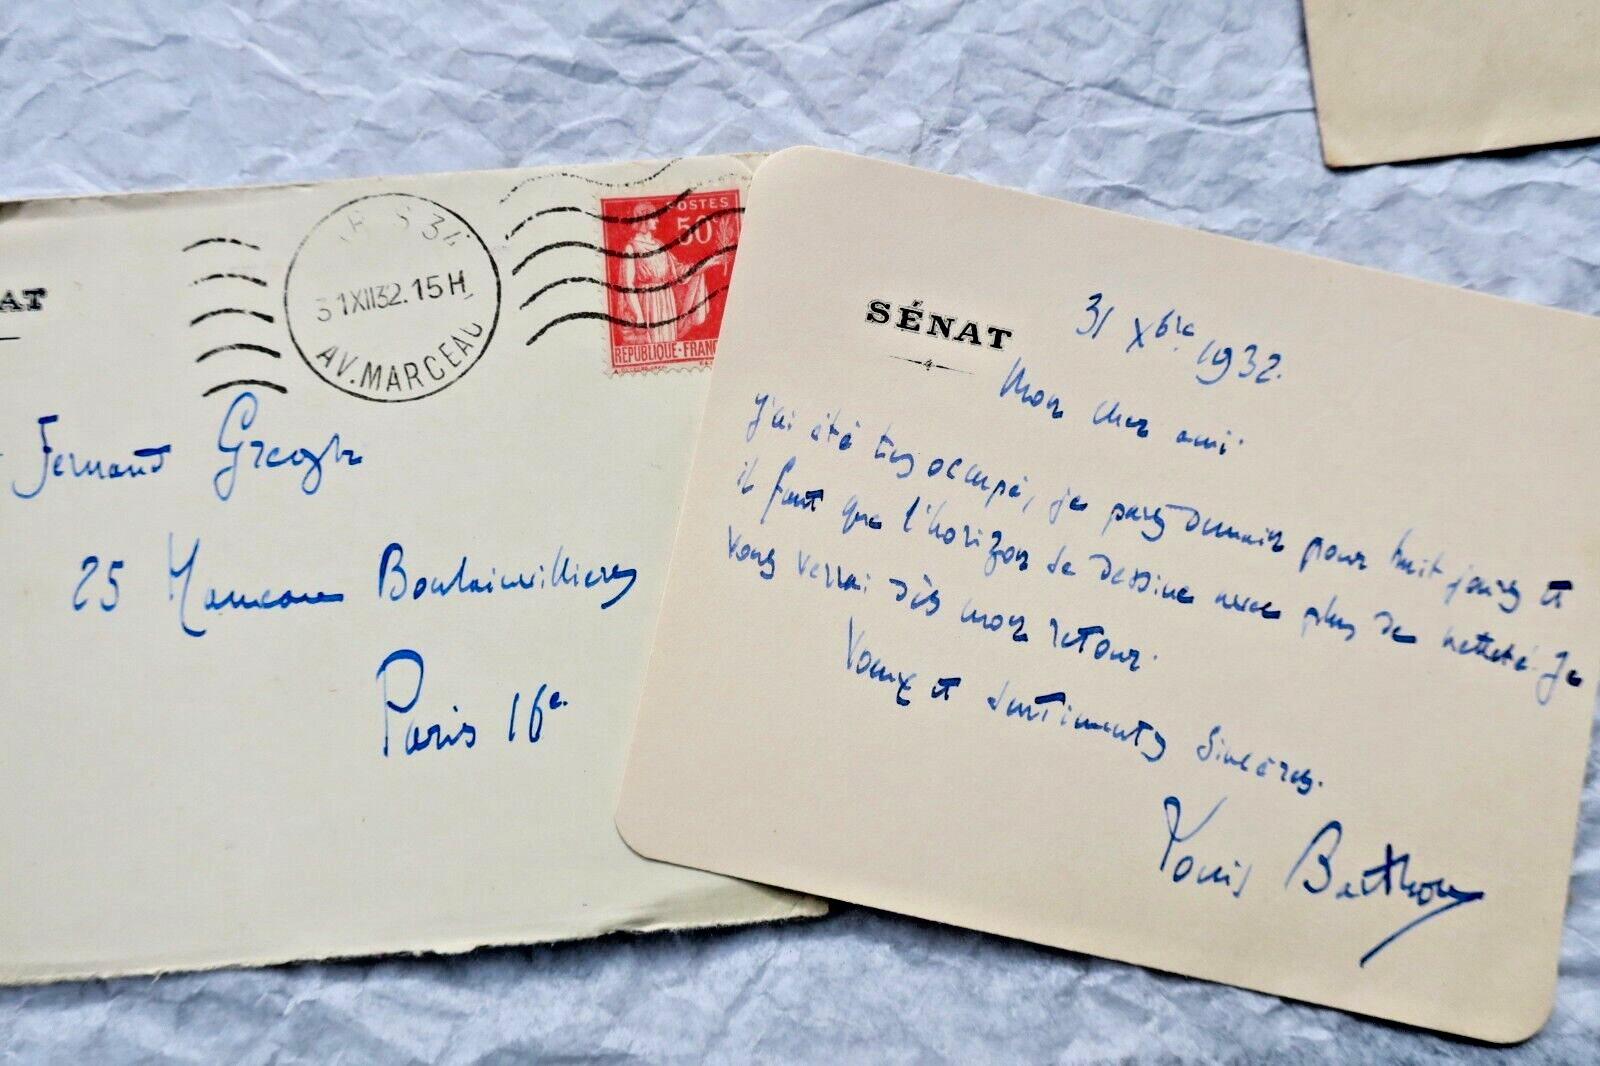 AT
S 34
31XII32.15H
AV. MARCEAU
POSTES
50c
REPUBLIQUE-FRANC
Fernand Gregh
25 Hameau Boulainvilliers
Paris 16e.
SÉNAT
31 Xbre 1932.
Mon cher ami.
J'ai été très occupé, je pars demain pour huit jours et
il faut que l'horizon se dessine avec plus de netteté. Je
vous verrai dès mon retour.
Vœux et sentiments sincères.
Louis Barthou